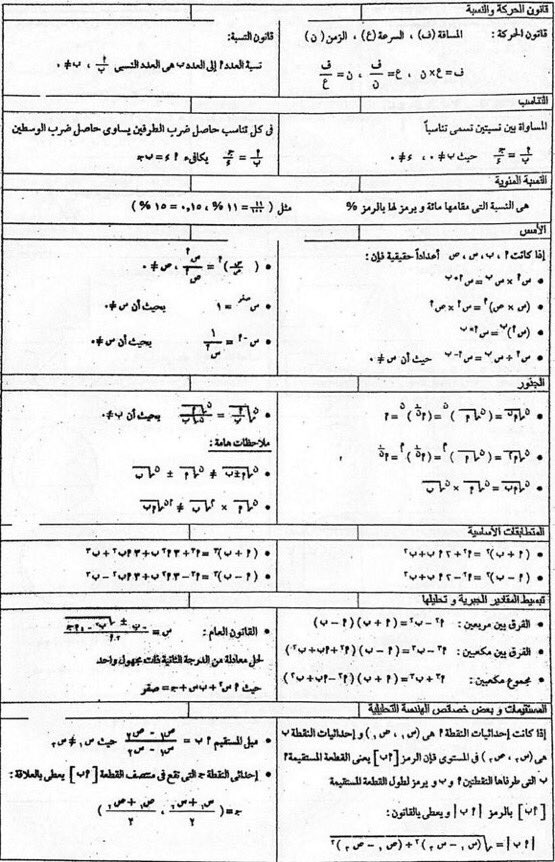 قانون الحركة والنسبة
قانون الحركة : المسافة (ف) ، السرعة (ع) ، الزمن (ن)
ف = ع × ن ، ع = ف/ن ، ن = ف/ع
قانون النسبة:
نسبة العدد أ إلى العدد ب هى العدد النسبى أ/ب ، ب ≠ ٠
التناسب
المساواة بين نسبتين تسمى تناسباً
أ/ب = ج/د حيث ب ≠ ٠ ، د ≠ ٠
فى كل تناسب حاصل ضرب الطرفين يساوى حاصل ضرب الوسطين
أ/ب = ج/د يكافىء أ د = ب ج
النسبة المئوية
هى النسبة التى مقامها مائة و يرمز لها بالرمز % مثل ( ١١/١٠٠ = ١١ % ، ٠,١٥ = ١٥ % )
الأسس
إذا كانت أ ، ب ، س ، ص أعداداً حقيقية فإن :
• س^أ × س^ب = س^(أ+ب)
• (س × ص)^أ = س^أ × ص^أ
• س^أ ÷ س^ب = س^(أ-ب) حيث أن س ≠ ٠
• (س/ص)^أ = س^أ/ص^أ ، ص ≠ ٠
• س^صفر = ١ بحيث أن س ≠ ٠
• س^-أ = ١/س^أ بحيث أن س ≠ ٠
الجذور
• ن√(أب) = ن√أ × ن√ب
• ن√(أ/ب) = ن√أ / ن√ب بحيث أن ب ≠ ٠
ملاحظات هامة :
• ن√(أ±ب) ≠ ن√أ ± ن√ب
المتطابقات الأساسية
• (أ + ب)٢ = أ٢ + ٢ أ ب + ب٢
• (أ - ب)٢ = أ٢ - ٢ أ ب + ب٢
• (أ + ب)٣ = أ٣ + ٣ أ٢ ب + ٣ أ ب٢ + ب٣
• (أ - ب)٣ = أ٣ - ٣ أ٢ ب + ٣ أ ب٢ - ب٣
تبسيط المقادير الجبرية و تحليلها
• الفرق بين مربعين : أ٢ - ب٢ = (أ + ب) (أ - ب)
• الفرق بين مكعبين : أ٣ - ب٣ = (أ - ب) (أ٢ + أب + ب٢)
• مجموع مكعبين : أ٣ + ب٣ = (أ + ب) (أ٢ - أب + ب٢)
• القانون العام : س = (-ب ± √(ب٢ - ٤أج)) / ٢أ
لحل معادلة من الدرجة الثانية ذات مجهول واحد
حيث أ س٢ + ب س + ج = صفر
المستقيمات و بعض خصائص الهندسة التحليلية
إذا كانت إحداثيات النقطة أ هى (س١ ، ص١) و إحداثيات النقطة ب
هى (س٢ ، ص٢) فى المستوى فإن الرمز [أب] يعنى القطعة المستقيمة
التى طرفاها النقطتين أ و ب و يرمز لطول القطعة المستقيمة
[أب] بالرمز |أب| و يعطى بالقانون :
|أب| = √((س١ - س٢)٢ + (ص١ - ص٢)٢)
• ميل المستقيم أ ب = (ص١ - ص٢)/(س١ - س٢) حيث س١ ≠ س٢
• إحداثى النقطة ج التى تقع فى منتصف القطعة [أب] يعطى بالعلاقة :
ج = ( (س١ + س٢)/٢ ، (ص١ + ص٢)/٢ )